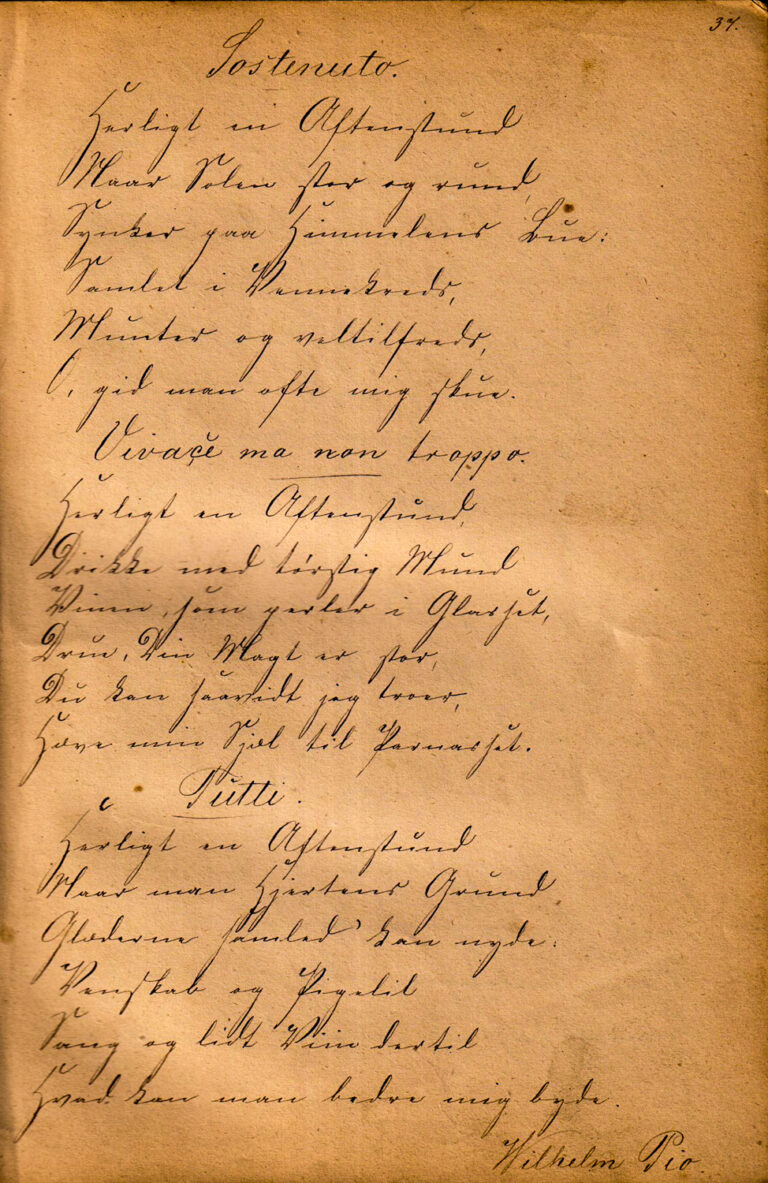 37.
Sostenuto.
Herligt en Aftenstund
Naar Solen stor og rund,
Synker paa Himmelens Bue:
Samlet i Vennekreds,
Munter og veltilfreds,
O, gid man ofte mig skue.
Vivaçe ma non troppo.
Herligt en Aftenstund,
Drikke med törstig Mund
Vinen, som perler i Glasset,
Drue, Din Magt er stor,
Du kan saavidt jeg troer,
Hæve min Sjæl til Parnasset.
Tutti.
Herligt en Aftenstund
Naar man af Hjertens Grund
Glæderne samled' kan nyde:
Venskab og Pigelil
Sang og lidt Viin dertil
Hvad kan man bedre mig byde.
Wilhelm Pio.